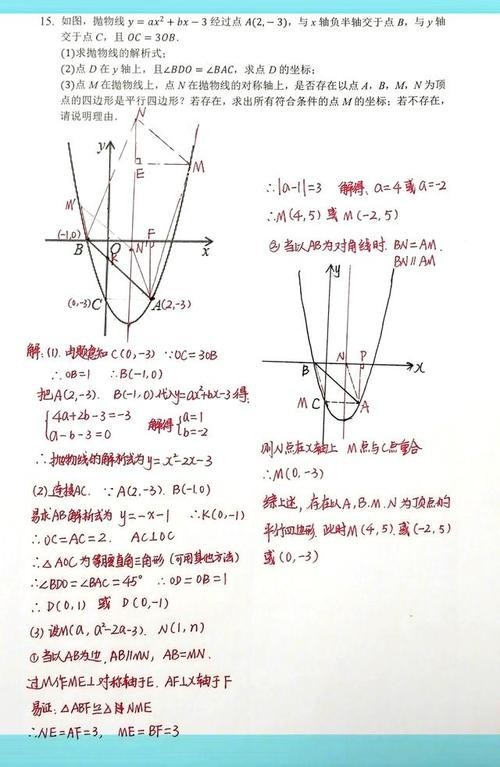 15. 如图，抛物线 y = ax² + bx − 3 经过点 A(2, −3)，与 x 轴负半轴交于点 B，与 y 轴
交于点 C，且 OC = 3OB.
(1)求抛物线的解析式；
(2)点 D 在 y 轴上，且∠BDO = ∠BAC，求点 D 的坐标；
(3)点 M 在抛物线上，点 N 在抛物线的对称轴上，是否存在以点 A，B，M，N 为顶
点的四边形是平行四边形？若存在，求出所有符合条件的点 M 的坐标；若不存在，
请说明理由.
N
y
E
M
M'
F
(-1,0)
B
O
K
N'
x
(0,-3)
C
A(2,-3)
解: (1). 由题意知 C(0,-3) ∵OC=3OB
∴OB=1 ∴B(-1,0)
把A(2,-3). B(-1,0)代入y=ax²+bx-3得:
{4a+2b-3=-3
a-b-3=0
解得{a=1
b=-2
∴抛物线的解析式为 y=x²-2x-3
(2) 连接AC. ∵A(2,-3). B(-1,0)
易求AB解析式为 y=-x-1 ∴K(0,-1)
∴OC=AC=2. AC⊥OC
∴△AOC为等腰直角三角形 (可用其他方法)
∴∠BDO=∠BAC=45° ∴OD=OB=1
∴D(0,1) 或 D(0,-1)
(3) 设M(a, a²-2a-3). N(1,n)
① 当以AB为边. AB∥MN, AB=MN.
过M作ME⊥对称轴于E. AF⊥X轴于F
易证: △ABF≌△NME
∴NE=AF=3, ME=BF=3
∴|a-1|=3 解得: a=4或a=-2
∴M(4,5) 或 M(-2,5)
② 当以AB为对角线时. BN=AM.
BN∥AM
y
B
N
P
x
M
C
A
则N点在X轴上 M点与C点重合
∴M(0,-3)
综上述, 存在以A.B.M.N为顶点的
平行四边形. 此时M(4,5). 或(-2,5)
或(0,-3)